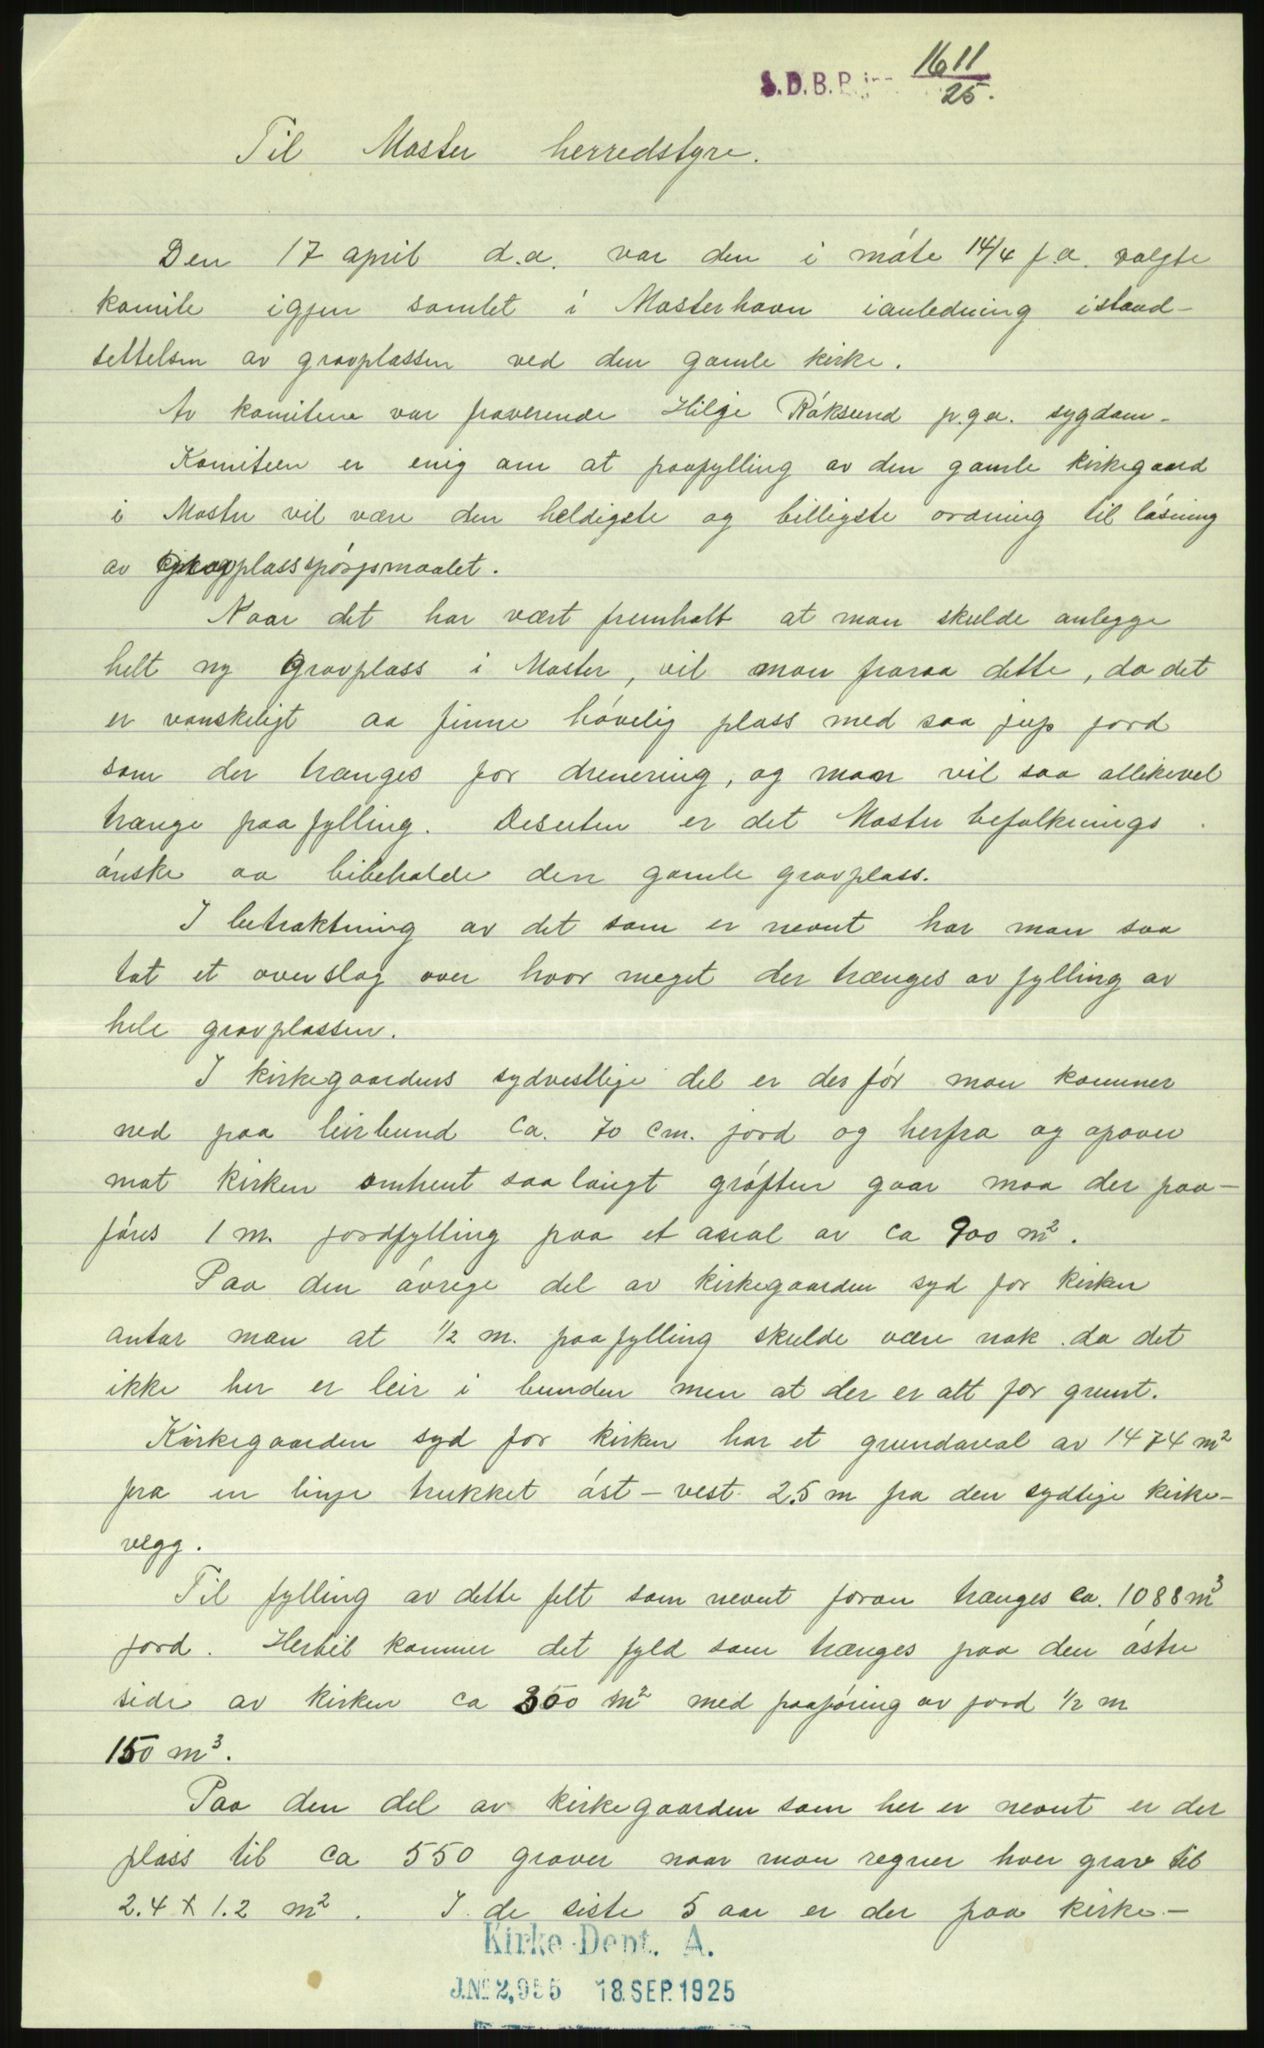 S.D.B.P. jnr. 1611/25.
Til Moster herredstyre.
Den 17 april d.a. var den i møte 14/4 f.a. valgte
komite igjen samlet i Mosterhavn ianledning istand-
settelsen av gravplassen ved den gamle kirke.
Av komiteen var fraværende Hilge Røksund p.g.a. sygdom.
Komiteen er enig om at paafylling av den gamle kirkegaard
i Moster vil være den heldigste og billigste ordning til løsning
av gravplasspørgsmaalet.
Naar det har vært fremholt at man skulde anlegge
helt ny Gravplass i Moster, vil man fraraa dette, da det
er vanskeligt aa finne høvelig plass med saa jup jord
som der trænges for drenering, og man vil saa allikevel
trænge paafylling. Desuten er det Moster befolknings
ønske aa bibeholde den gamle gravplass.
I betraktning av det som er nevnt har man saa
tat et overslag over hvor meget der trænges av fylling av
hele gravplassen.
I kirkegaardens sydvestlige del er der før man kommer
ned paa leirbund ca. 70 cm. jord og herfra og opover
mot kirken omhent saa langt grøften gaar maa der paa-
føres 1 m. jordfylling paa et areal av ca 900 m².
Paa den øvrige del av kirkegaarden syd for kirken
antar man at ½ m. paafylling skulde være nok da det
ikke her er leir i bunden men at der er alt for grunt.
Kirkegaarden syd for kirken har et grundareal av 1474 m²
fra en linje trukket øst - vest 2.5 m fra den sydlige kirke-
vegg.
Til fylling av dette felt som nevnt foran trænges ca. 1088 m³
jord. Hertil kommer det fyld som trænges paa den østre
side av kirken ca 300 m² med paaføring av jord ½ m
150 m³.
Paa den del av kirkegaarden som her er nevnt er der
plass til ca 550 graver naar man regner hver grav til
2.4 x 1.2 m². I de siste 5 aar er der paa kirke-
Kirke-Dept. A.
J.No 2,955 18.SEP.1925